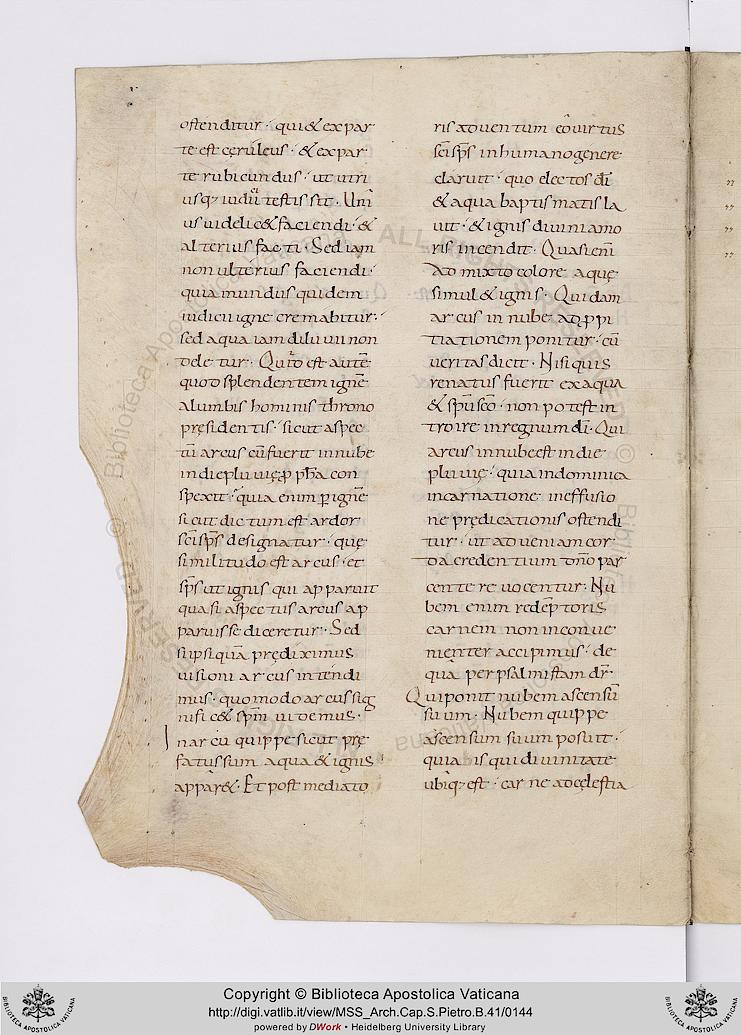 ostenditur · qui & ex par
te est cęruleus · & ex par
te rubicundus · ut utri
usq; iudicii testis sit · Uni
us uidelic& faciendi · &
alterius facti · Sed iam
non ulterius faciendi ·
quia mundus quidem
iudicii igne cremabitur ·
sed aqua iam diluuii non
deletur · est autē
quod splendentem ignē
alumbis hominis throno
pręsidentis · sicut aspec
tū arcus cū fuerit in nube
in die pluuię ꝓph&a con
spexit · quia enim p̱ ignē
sicut dictum est ardor
sc̄i sp̄s designatur · quę
similitudo est arcus · et
sp̄s ut ignis qui apparuit
quasi aspectus arcus ap
paruisse diceretur · Sed
si ipsi quā prędiximus
uisioni arcus intendi
mus · quomodo arcus sig
nific& sp̄m uidemus ·
In arcu quippe sicut prę
fatus sum aqua & ignis
appar& · Et post mediato
ris aduentum eo uirtus
sc̄i sp̄s in humano genere
claruit · quo electos dī
& aqua baptismatis la
uit · & ignis diuini amo
ris incendit · Quasi enī
ad mixto colore aquę
simul & ignis · Quidam
arcus in nube ad ꝓpi
tiationem ponitur · cū
ueritas dicit · Nisi quis
renatus fuerit ex aqua
& sp̄u sc̄o · non potest in
troire in regnum dī · Qui
arcus in nube est in die
pluuię · quia in dominica
incarnatione in effusio
ne prędicationis ostendi
tur · ut ad ueniam cor
da credentium dn̄o par
cente reuocentur · Nu
bem enim redemptoris
carnem non inconue
nienter accipimus · de
qua per psalmistam dr̄ ·
Qui ponit nubem ascensū
suum · Nubem quippe
ascensum suum posuit ·
quia is qui diuinitate
ubiq; est · carne ad cęlestia
Copyright © Biblioteca Apostolica Vaticana
http://digi.vatlib.it/view/MSS_Arch.Cap.S.Pietro.B.41/0144
powered by DWork • Heidelberg University Library